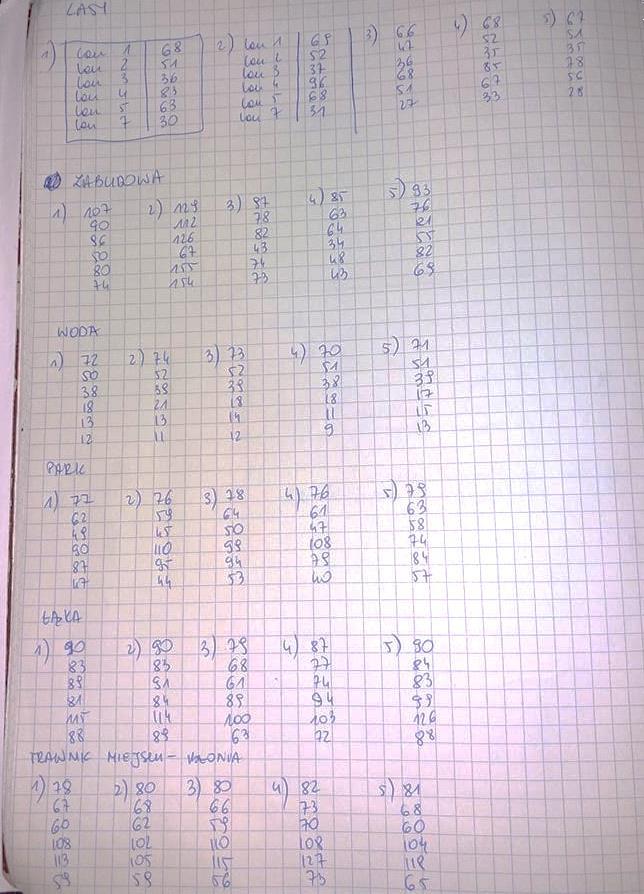 LASY
1) lan 1 68 2) lan 1 69 3) 66 4) 68 5) 67
lan 2 51 lan 2 52 47 52 51
lan 3 36 lan 3 37 36 35 35
lan 4 83 lan 4 96 68 85 78
lan 5 63 lan 5 68 51 67 56
lan 7 30 lan 7 31 27 33 28
ZABUDOWA
1) 107 2) 129 3) 87 4) 85 5) 93
90 112 78 63 76
86 126 82 64 81
50 67 43 34 55
80 155 74 48 82
74 154 73 43 69
WODA
1) 72 2) 74 3) 73 4) 70 5) 71
50 52 52 51 51
38 39 39 38 39
18 21 18 18 17
13 13 14 11 15
12 11 12 9 13
PARK
1) 77 2) 76 3) 78 4) 76 5) 79
62 59 64 61 63
49 45 50 47 58
90 110 99 108 74
87 95 94 79 84
47 44 53 40 57
ŁĄKA
1) 90 2) 90 3) 79 4) 87 5) 90
83 83 68 77 84
89 91 61 74 83
81 84 89 94 99
115 114 100 103 126
88 89 63 72 88
TRAWNIK MIEJSKI -
1) 79 2) 80 3) 80 4) 82 5) 81
67 68 66 73 68
60 62 59 70 60
108 102 110 108 104
113 105 115 127 118
59 59 56 73 65